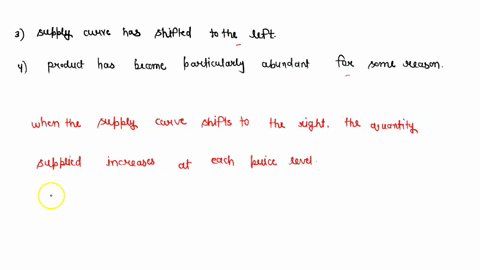 3) supply curve has shifted to the left.
4) product has become particularly abundant for some reason.
when the supply curve shifts to the right, the quantity
supplied increases at each price level.